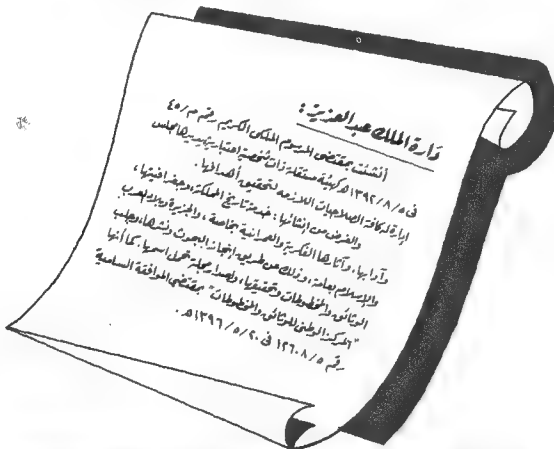 دَارة الملك عبد العزيز :
أنشئت بمقتضى المرسوم الملكي الكريم رقم م/٤٥
في ١٣٩٢/٨/٥هـ كهيئة مستقلة ذات شخصية اعتبارية يديرها مجلس
إدارة له كافة الصلاحيات اللازمة لتحقيق أهدافها .
والغرض من إنشائها : خدمة تاريخ المملكة، وجغرافيتها ،
وآدابها، وآثارها الفكرية والعمرانية بخاصة ، والجزيرة وبلاد العرب
والإسلام بعامة، وذلك عن طريق إنجاز البحوث ونشرها، وجلب
الوثائق والمخطوطات وتحقيقها، وإصدار مجلة تحمل اسمها، كما أنها
"المركز الوطني للوثائق والمخطوطات" بمقتضى الموافقة السامية
رقم ١٢٦٠٨/٥ في ١٣٩٦/٥/٢٠هـ .